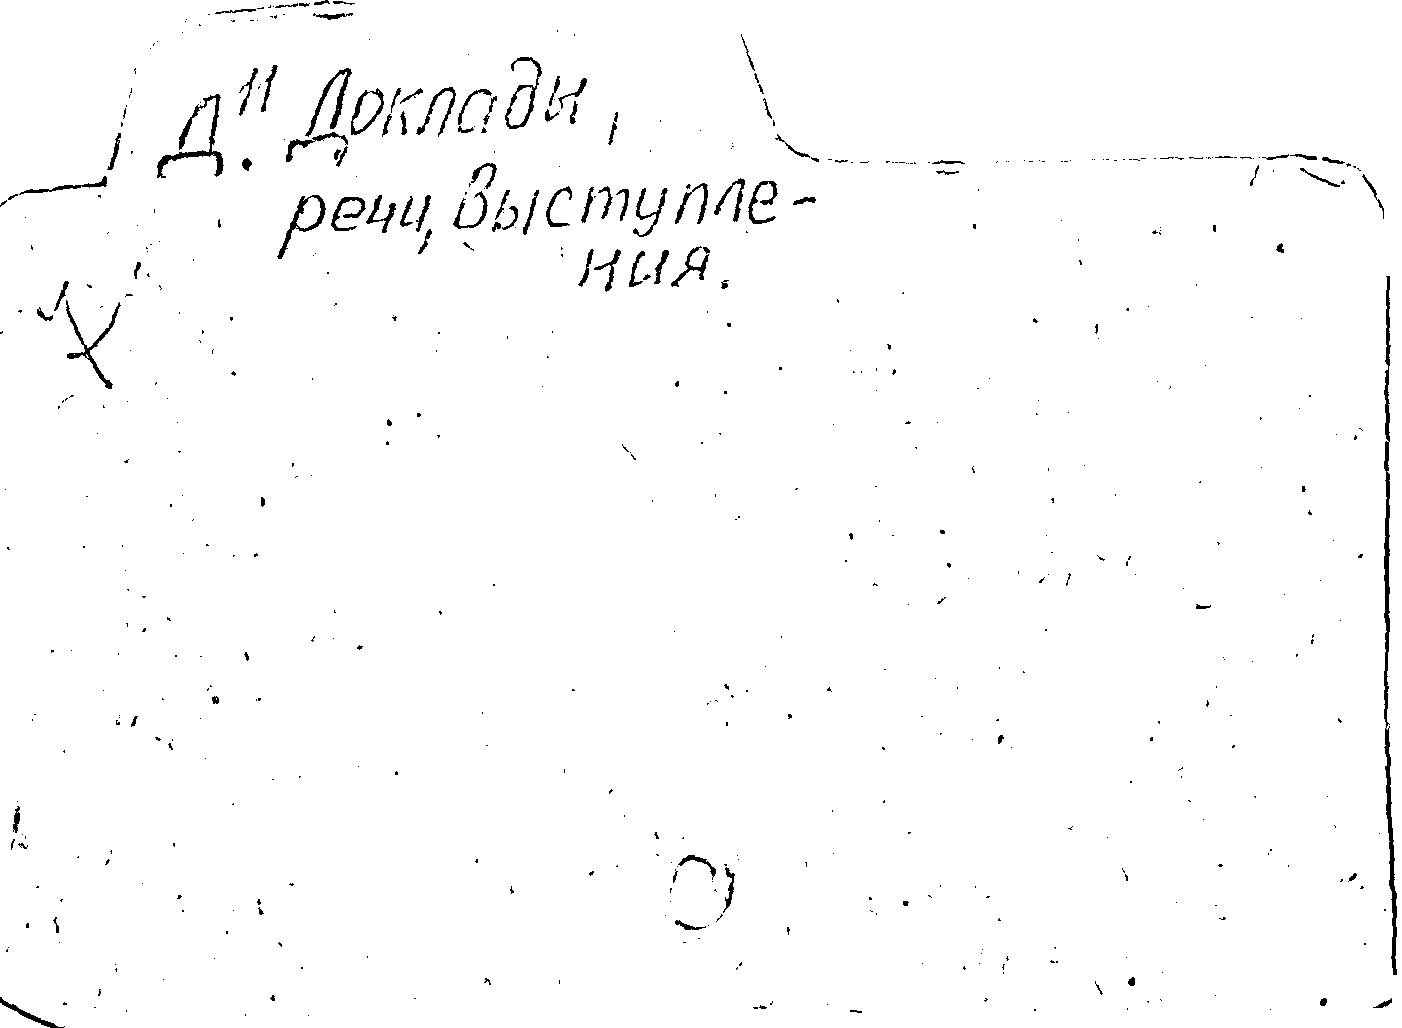 Д". Доклады,
речи, выступле-
ния.